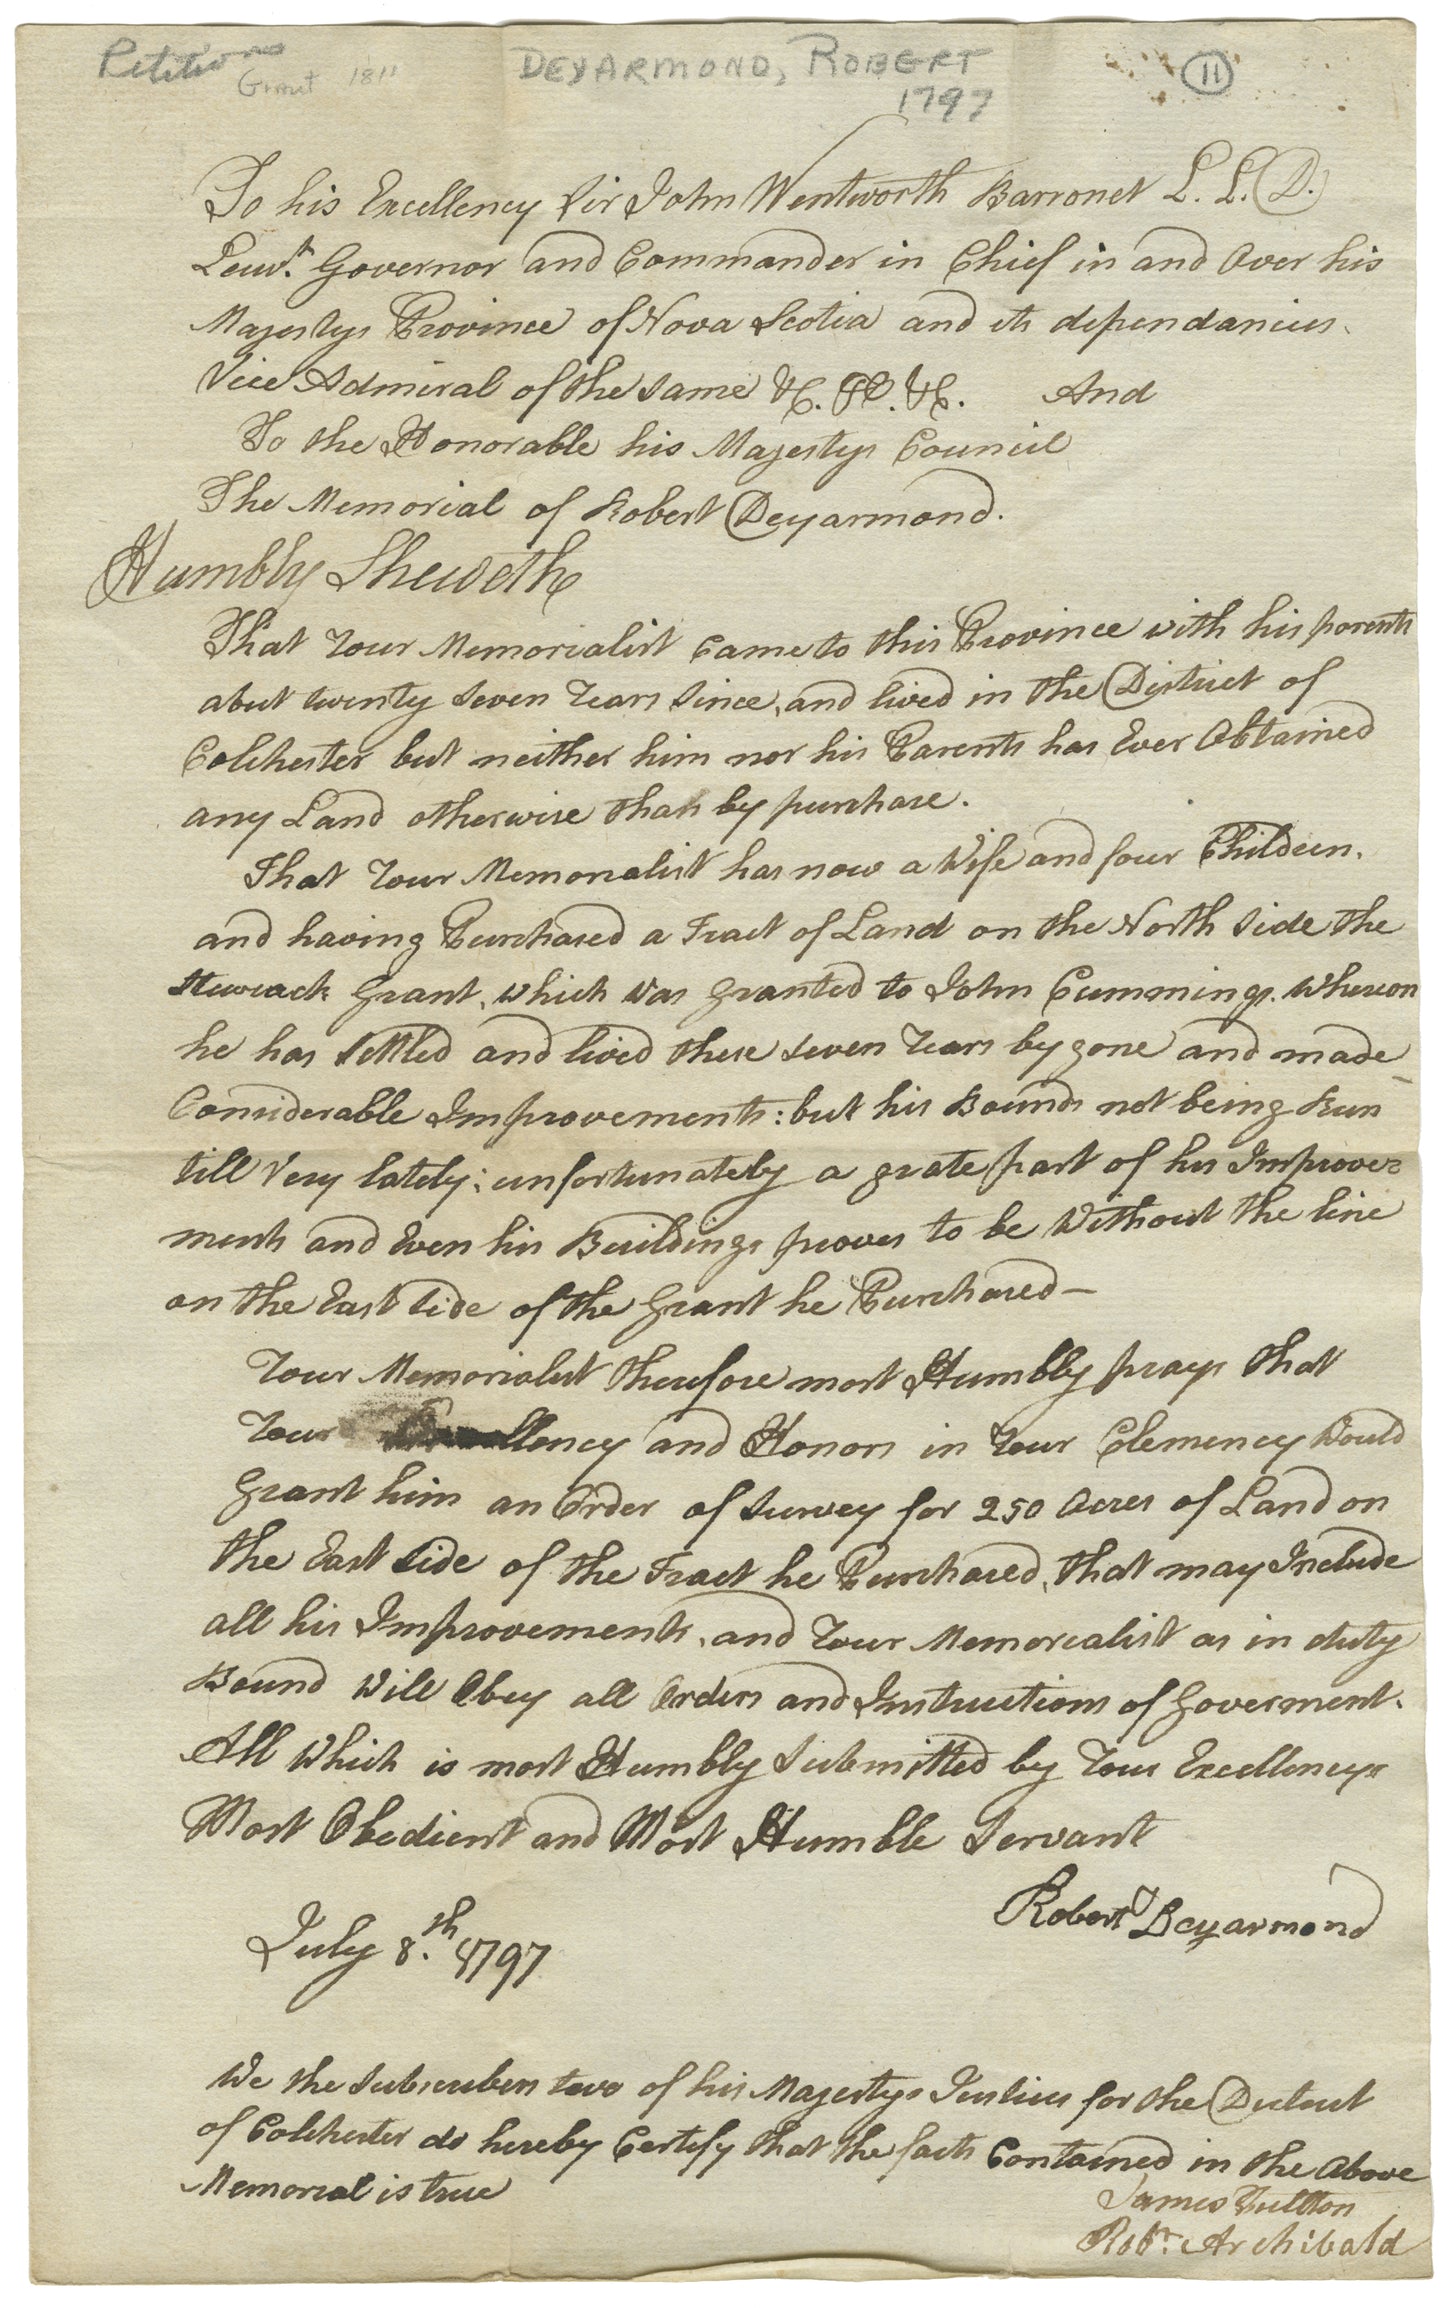 Petitions
Grant 1811
DEYARMOND, ROBERT
1797
11
To his Excellency Sir John Wentworth Barronet L. L. D.
Leuv.t Governor and Commander in Chief in and Over his
Majestys Province of Nova Scotia and its dependancies.
Vice Admiral of the same &C. &C. &C. And
To the Honorable his Majestys Council
The Memorial of Robert Deyarmond.
Humbly Sheweth
That Your Memorialist came to this Province with his parents
abut twenty seven Years since, and lived in the District of
Colchester but neither him nor his Parents has Ever Obtained
any Land otherwise than by purchase.
That Your Memorialist has now a Wife and four Children,
and having Purchased a Tract of Land on the North side the
Stewiack Grant, which was granted to John Cummings. Whereon
he has settled and lived these seven Years by gone and made
Considerable Improvements: but his Bounds not being Run
till Very lately; unfortunately a grate part of his Improve=
ments and Even his Buildings proves to be Without the line
on the East side of the Grant he Purchased—
Your Memorialist therefore most Humbly prays that
Your Excellency and Honors in Your Clemency Would
Grant him an Order of Survey for 250 Acres of Land on
the East side of the Tract he Purchased, that may Include
all his Improvements, and Your Memorialist as in duty
Bound Will Obey all Orders and Instructions of Goverment.
All Which is most Humbly Submitted by Your Excellencys
Most Obedient and Most Humble Servant
Robert Deyarmond
July 8.th 1797
We the Subscribers two of his Majestys Justices for the District
of Colchester do hereby Certify that the facts Contained in the Above
Memorial is true
James Fulton
Robt. Archibald